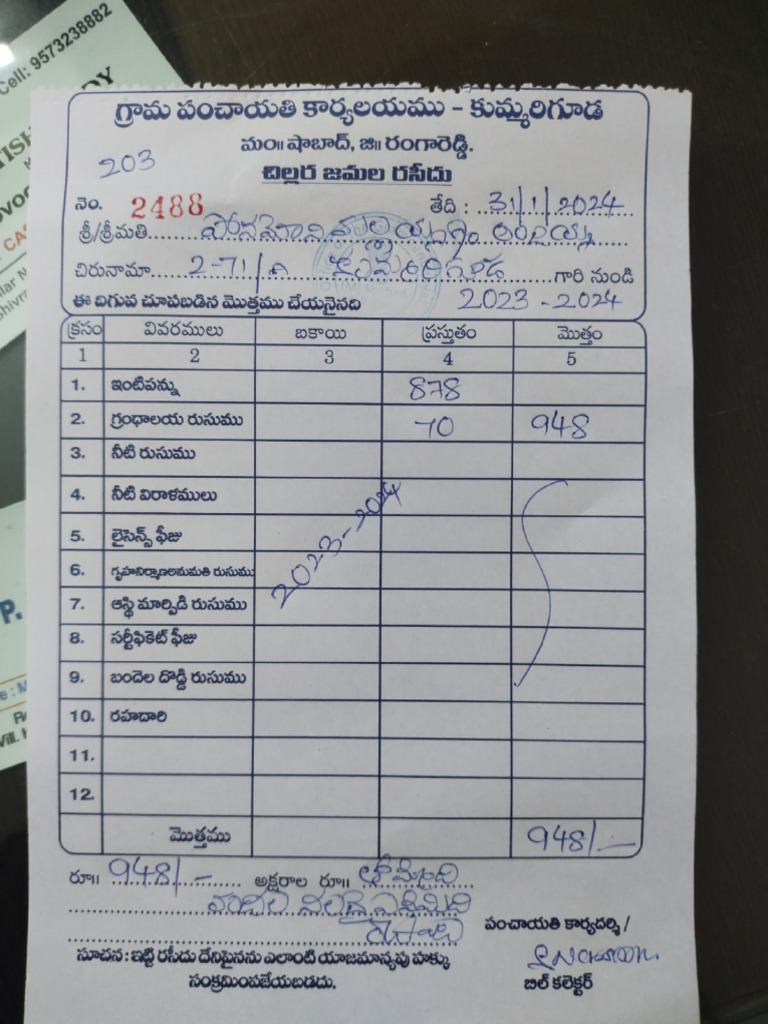 Cell: 9573238882
గ్రామ పంచాయతి కార్యలయము - కుమ్మరిగూడ
మం॥ షాబాద్, జి॥ రంగారెడ్డి.
203
చిల్లర జమల రసీదు
నెం. 2488 తేది : 31/1/2024
శ్రీ/శ్రీమతి
చిరునామా 2-71/ కుమ్మరిగూడ గారి నుండి
ఈ దిగువ చూపబడిన మొత్తము చేయనైనది 2023-2024
క్రసం వివరములు బకాయి ప్రస్తుతం మొత్తం
1 2 3 4 5
1. ఇంటిపన్ను 878
2. గ్రంధాలయ రుసుము 70 948
3. నీటి రుసుము
4. నీటి విరాళములు
5. లైసెన్స్ ఫీజు
6. గృహనిర్మాణఅనుమతి రుసుము
7. ఆస్థి మార్పిడి రుసుము
8. సర్టీఫికెట్ ఫీజు
9. బందెల దొడ్డి రుసుము
10. రహదారి
11.
12.
2023-2024
మొత్తము 948/-
రూ॥ 948/- అక్షరాల రూ॥ తొమ్మిది
వందల నలభై ఎనిమిది
పంచాయతి కార్యదర్శి/
బిల్ కలెక్టర్
సూచన : ఇట్టి రసీదు దేనిపైనను ఎలాంటి యాజమాన్యపు హక్కు
సంక్రమింపజేయబడదు.